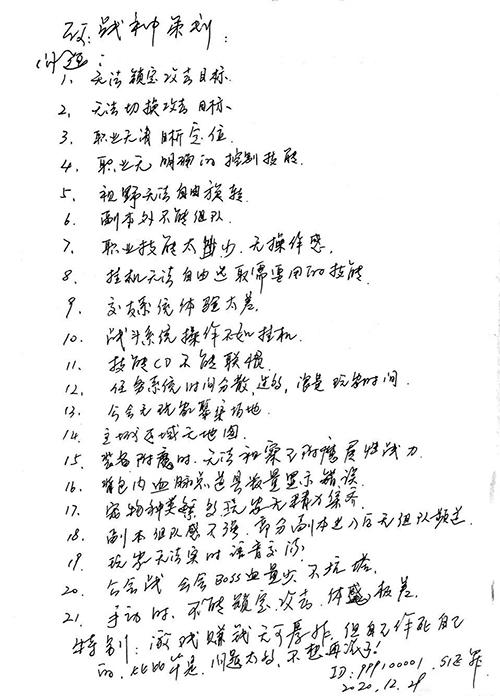 致:战神策划:
问题:
1、无法锁定攻击目标.
2、无法切换攻击目标、
3、职业无清晰定位.
4、职业无明确的控制技能.
5、视野无法自由旋转.
6、副本外不能组队.
7、职业技能太少、无操作感.
8、挂机无法自由选取需要用的技能.
9、交友系统体验太差.
10、战斗系统操作不如挂机.
11、技能CD不能联惯.
12、任务系统时间分散,过多,浪费玩家时间.
13、公会无玩家聚集场地.
14、主城区域无地图.
15、装备附魔时.无法观察到附魔属性战力
16、背包内血脉总道具数量显示错误.
17、宠物种类繁多玩家无精力集齐
18、副本组队感不强,部分副本进入后无组队频道.
19、玩家无法实时语音交流.
20、公会战 公会BOSS血量少、不抗揍.
21、手动时、不能锁定攻击,体感极差.
特别:游戏赚钱无可厚非,但自己作死自己
的,比比皆是.问题太多,不想再说了!
ID:999100001.S12
2020.12.29